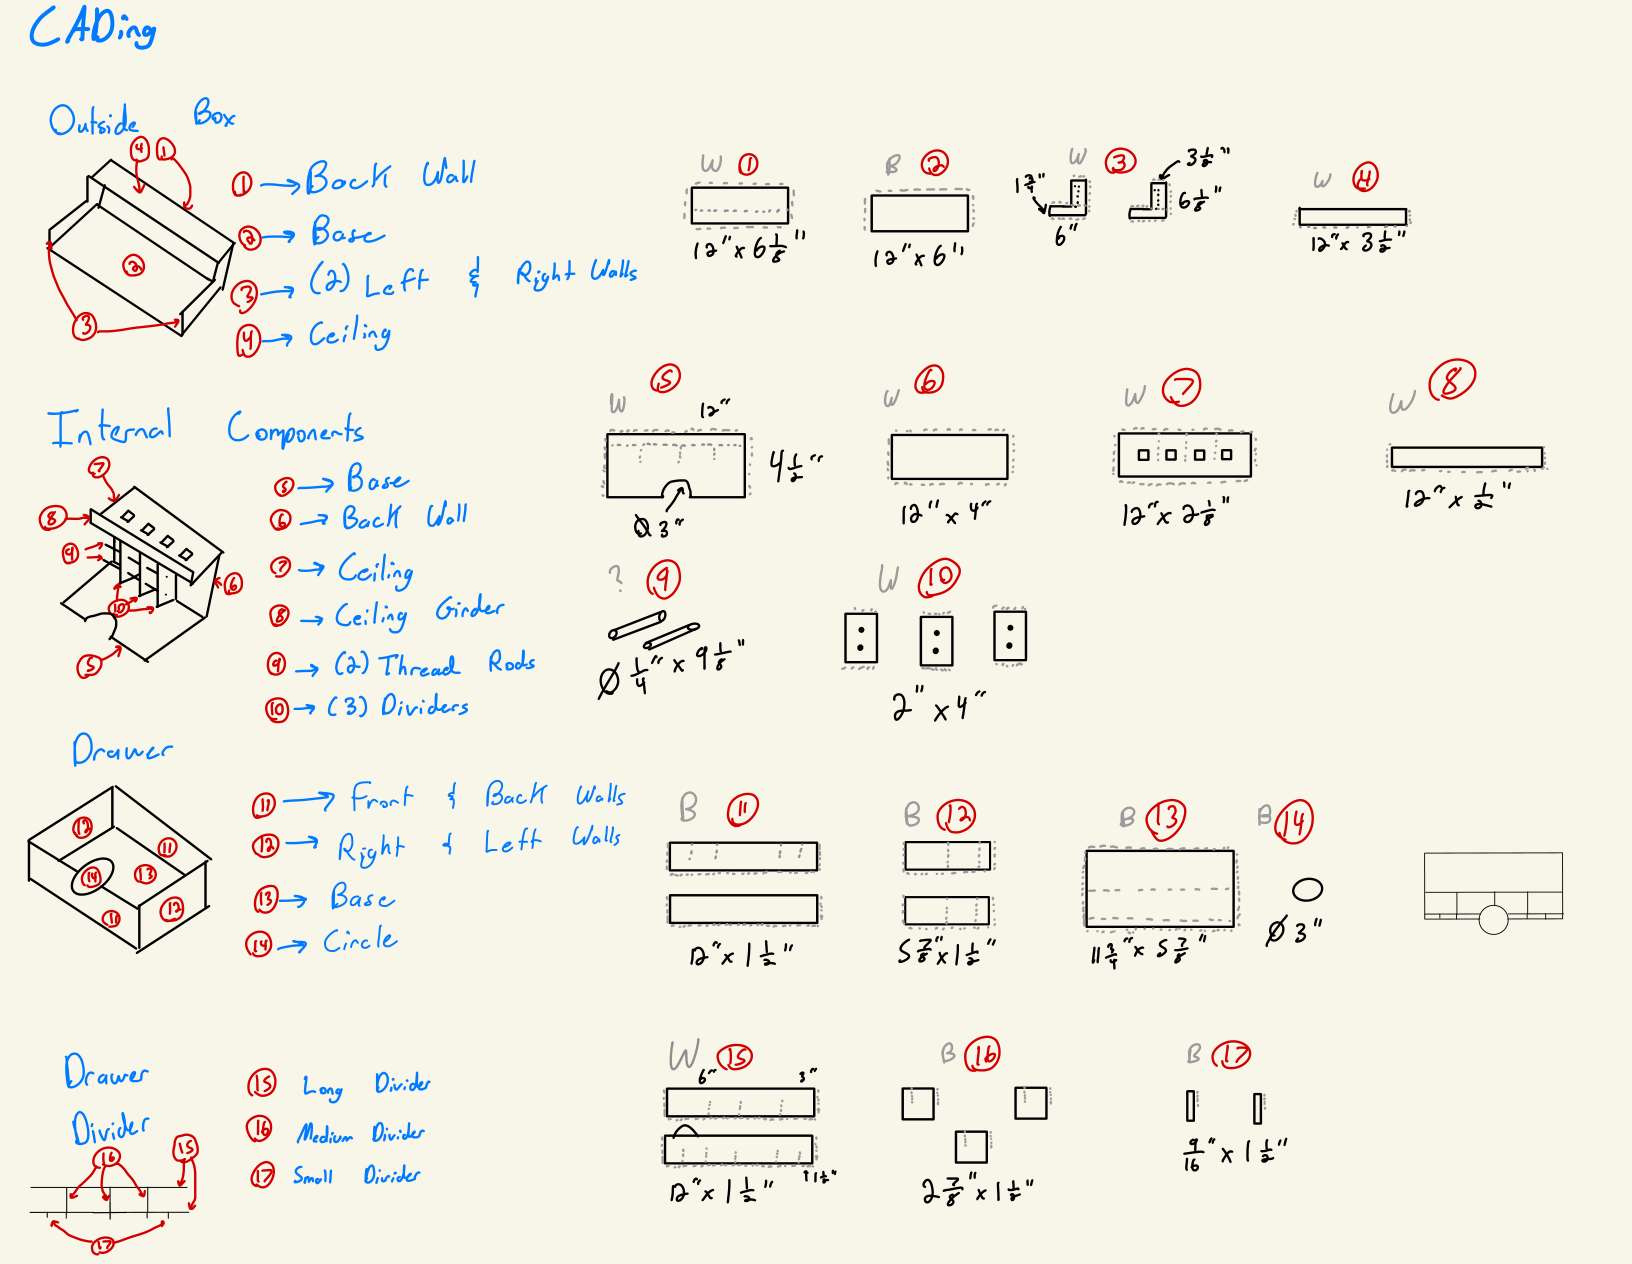 CADing
Outside Box
4 1
2
3
1 → Back Wall
2 → Base
3 → (2) Left & Right Walls
4 → Ceiling
W 1
12" x 6 1/8"
B 2
12" x 6"
W 3
3 1/2"
1 3/4"
6 1/8"
6"
W 4
12" x 3 1/2"
Internal Components
7
8
9
10
6
5
5 → Base
6 → Back Wall
7 → Ceiling
8 → Ceiling Girder
9 → (2) Thread Rods
10 → (3) Dividers
W 5
12"
4 1/2"
Ø 3"
W 6
12" x 4"
W 7
12" x 2 1/8"
W 8
12" x 1/2"
? 9
Ø 1/4" x 9 1/8"
W 10
2" x 4"
Drawer
12
11
14 13
10 12
11 → Front & Back Walls
12 → Right & Left Walls
13 → Base
14 → Circle
B 11
12" x 1 1/2"
B 12
5 7/8" x 1 1/2"
B 13
11 3/4" x 5 7/8"
B 14
Ø 3"
Drawer
Divider
16 15
17
15 Long Divider
16 Medium Divider
17 Small Divider
W 15
6" 3"
↑ 1 1/2"
12" x 1 1/2"
B 16
2 7/8" x 1 1/2"
B 17
9/16" x 1 1/2"